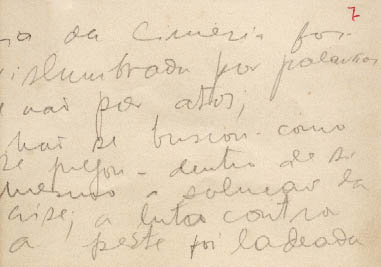 7
da Cimeria fos-
lumbrada por palavras
e não por atos;
não se buscou - como
se pregou - dentro de si
mesmo a solução da
crise; a luta contra
a peste foi ladeada